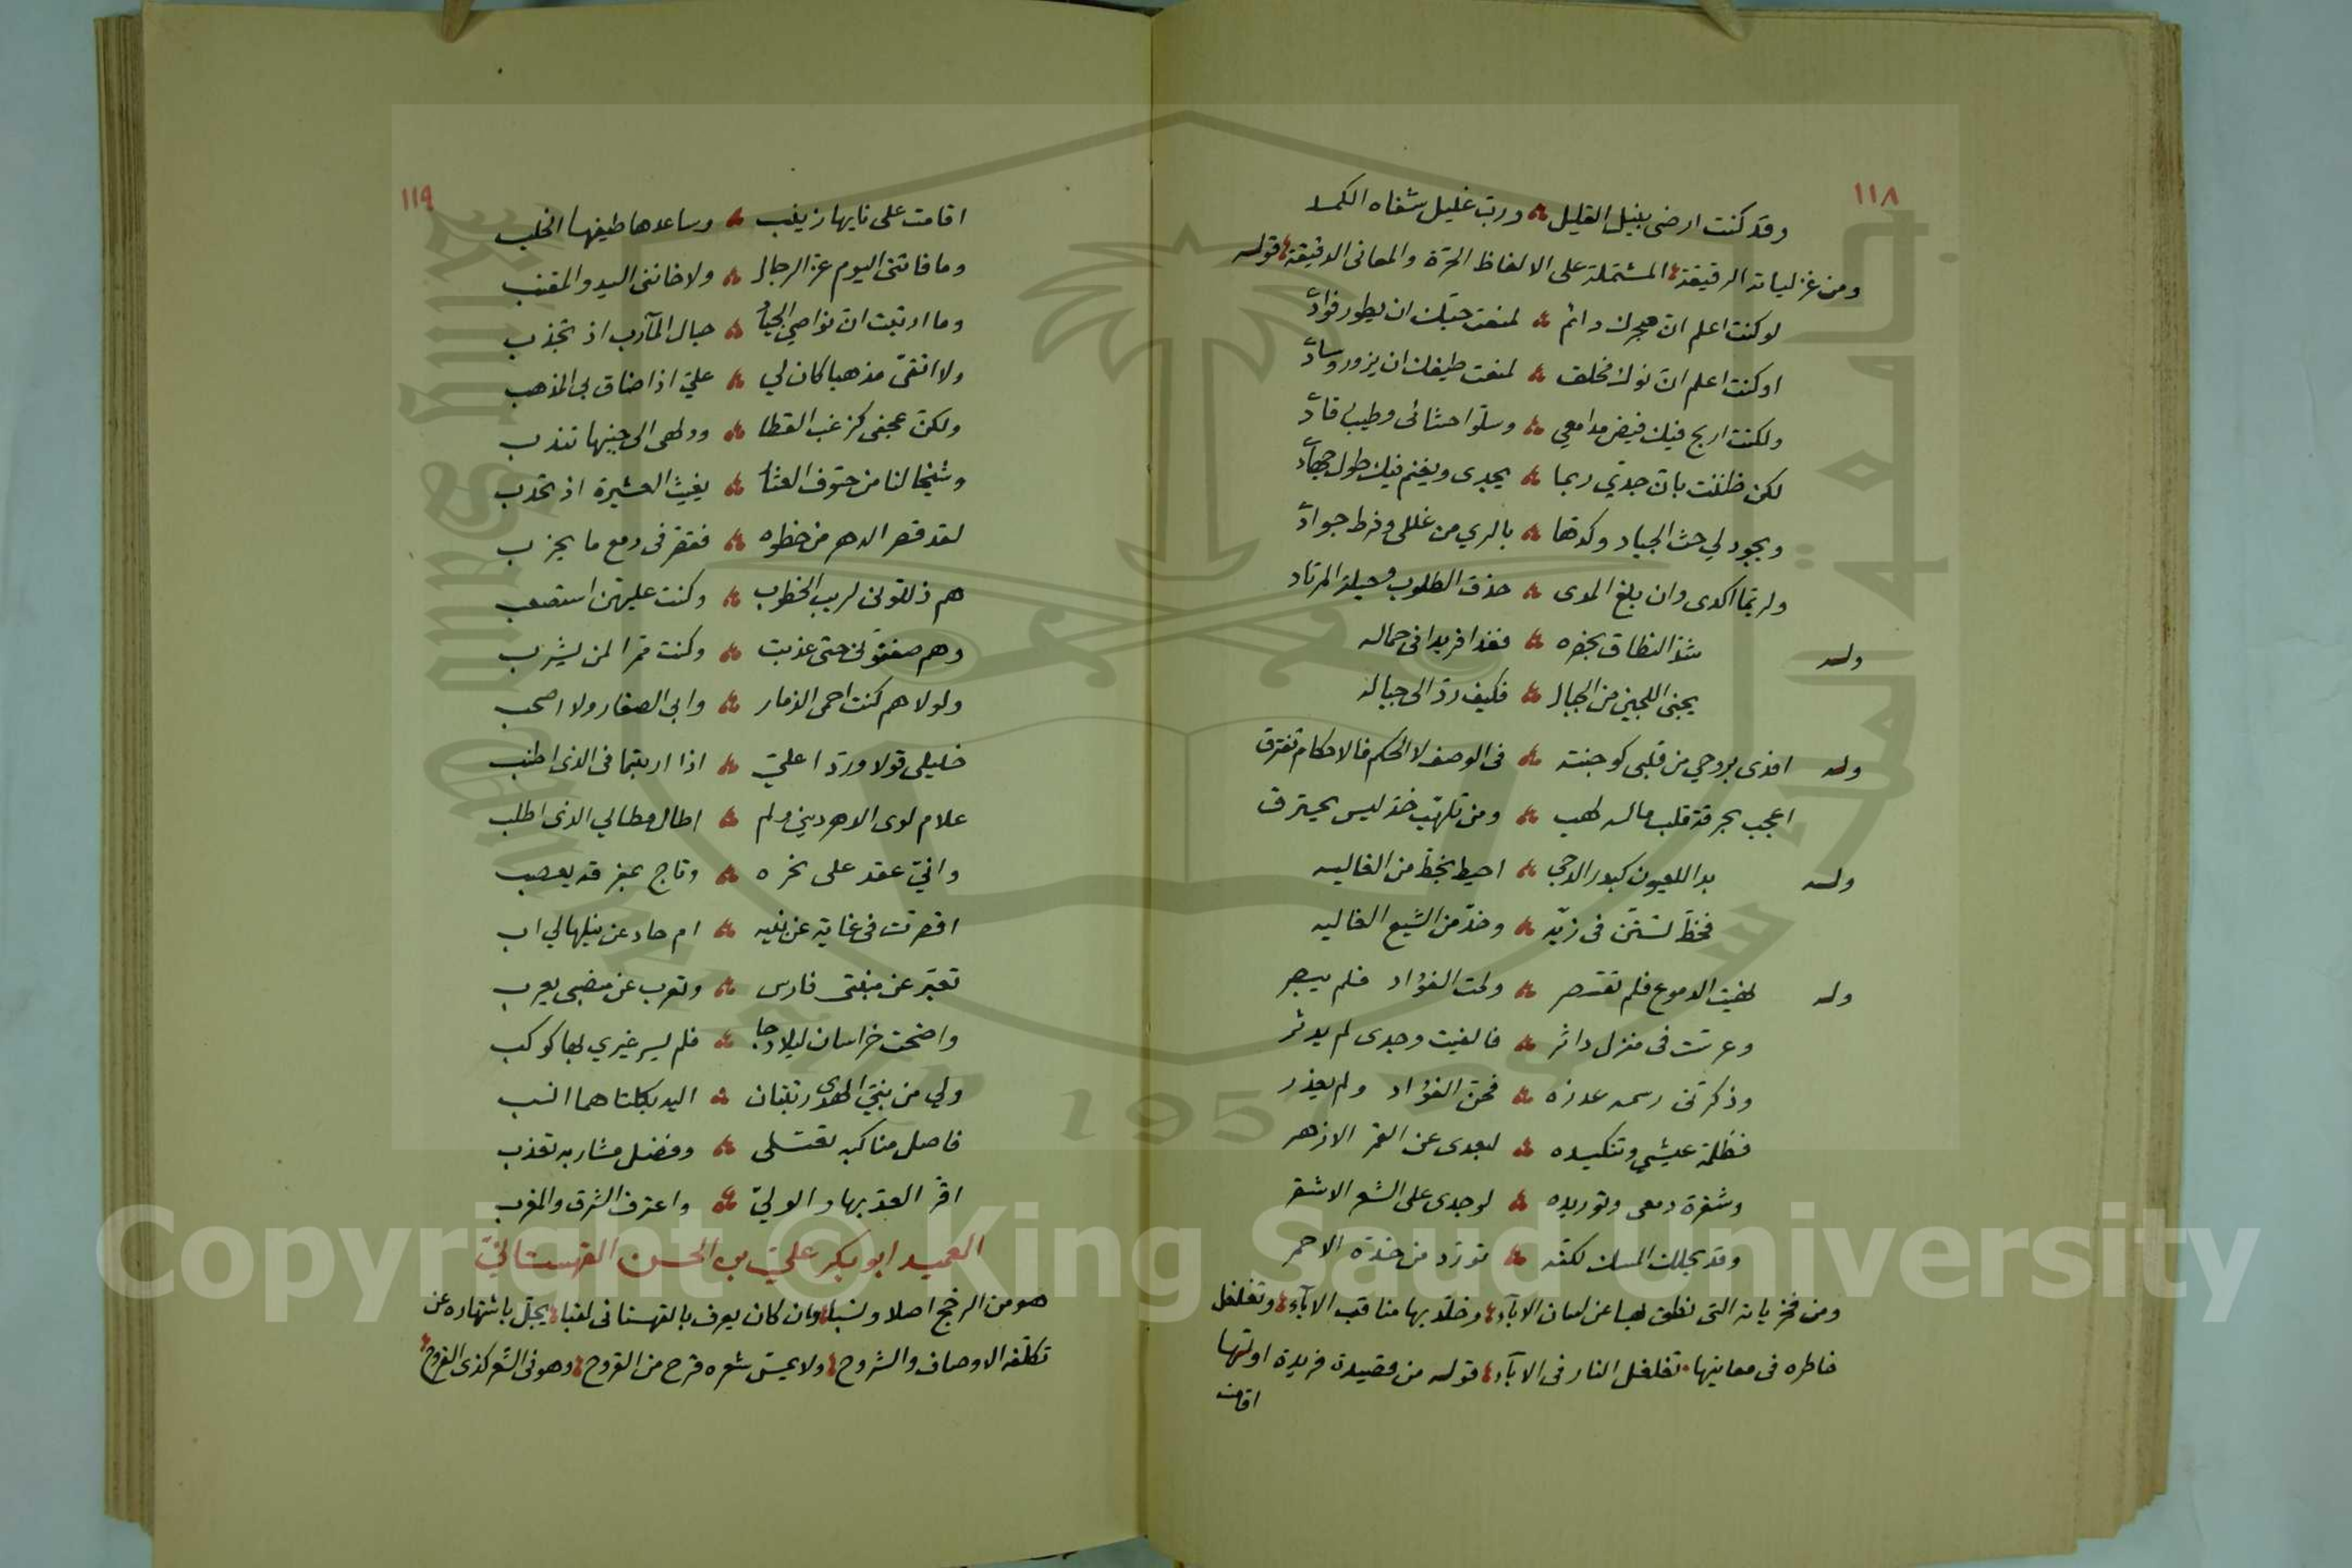 ١١٨
وقد كنت ارضى بنيل القليل ورب غليل شفاه الكمد
ومن غزلياته الرقيقة المشتملة على الالفاظ الحرة والمعانى الدقيقة قوله
لو كنت اعلم ان هجرك دائم لمنعت حبك ان يطور فوادى
او كنت اعلم ان نوك مخلف لمنعت طيفك ان يزور وسادى
ولكنت اربح فيك فيض مدامعي وسلو احشائى وطيب رقادى
لكن ظننت بان جدي ربما يجدى ويغنم فيك طول جهادى
ويجود لي حث الجياد وكدها بالري من غللى وفرط جوادى
ولربما اكدى وان بلغ المدى حذق الطلوب وحيلة المرتاد
وله شد النطاق بخصره فغدا فريدا فى جماله
يجنى اللجين من الجبال فكيف رد الى جباله
وله افدى بروحي من قلبى كوجنته فى الوصف لا الحكم فالاحكام تفترق
اعجب بحرقة قلب ماله لهب ومن تلهب خد ليس يحترق
وله بدا للعيون كبدر الدجي احيط بخط من الغاليه
فخط تسنن فى زيه وخد من الشيع الغاليه
وله نهيت الدموع فلم تقتصر ولمت الفؤاد فلم يبصر
وعرست فى منزل داثر فالفيت وجدى لم يدثر
وذكرتنى رسمه عذره فحن الفؤاد ولم يعذر
فظلمة عيشي وتنكيده لبعدى عن القمر الازهر
وشقرة دمعى وتوريده لوجدى على الشعر الاشقر
وقد يجلب المسك لكنه تورد من خده الاحمر
ومن فخرياته التى نطق بها عن لسان الاباء وخلد بها مناقب الآباء وتغلغل
خاطره فى معانيها تغلغل النار فى الاباء قوله من قصيدة فريدة اولها
اقامت
١١٩
اقامت على نايها زينب وساعدها طيفها الخلب
وما فاتنى اليوم عز الرجال ولا خاننى اليد والمقنب
وما ارتبت ان نواصي الجياد حبال المآرب اذ تجذب
ولا انتقى مذهبا كان لي علي اذا ضاق بى المذهب
ولكن عجفى كزغب القطا وولهى الى جنبها تندب
وشيخا لنا من حتوف العشار يغيث العشيرة اذ تحدب
لقد قصر الدهر من خطوه فقصر فى دمع ما يحزب
هم ذللونى لريب الخطوب وكنت عليهن استصعب
وهم صفقونى حتى عذبت وكنت مرا لمن يشرب
ولولاهم كنت احمى الذمار وابى الصغار ولا اصحب
خليلى قولا وردا علي اذا اربتما فى الذى اطنب
علام لوى الدهر ديني ولم اطال مطالي الذى اطلب
واني عقد على نحره وتاج بمفرقه يعصب
اقصرت فى غاية عن بنيه ام حاد عن نيلها لي اب
تعبر عن منبتى فارس وتعرب عن منصبى يعرب
واضحت خراسان ليلا دجا فلم يسر غيري بها كوكب
ولي من بنيي الهدى رتبتان اليه بكلتاهما انسب
فاصل مناكبه تعتلى وفضل مشاربه تعذب
اقر العدو بها والولي واعترف الشرق والمغرب
العميد ابو بكر علي بن الحسن القهستاني
هو من الرخج اصلا ونسبا وان كان يعرف بالقهستانى لقبا يجل باشتهاره عن
تكلفه الاوصاف والشروح ولا يمس شعره قرح من القروح وهو فى الشعر كذى القروح